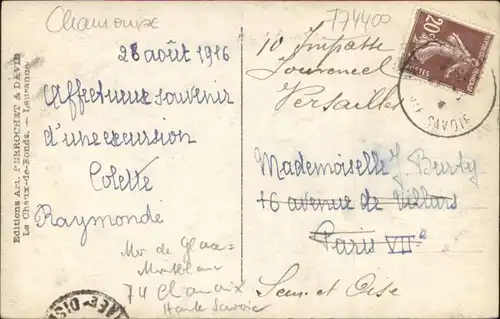 Chamonix
774400
28 août 1916
Affectueux souvenir
d'une excursion
Colette
Raymonde
Mer de Glace =
Montblanc
74 Chamonix
Haute Savoie
Editions Art. PERROCHET & DAVID
La Chaux-de-Fonds. — Lausanne
10 Impasse
Versailles
20c
POSTES
SAVOIE
Mademoiselle J. Beurty
16 avenue de Villars
Paris VIIe
Seine et Oise